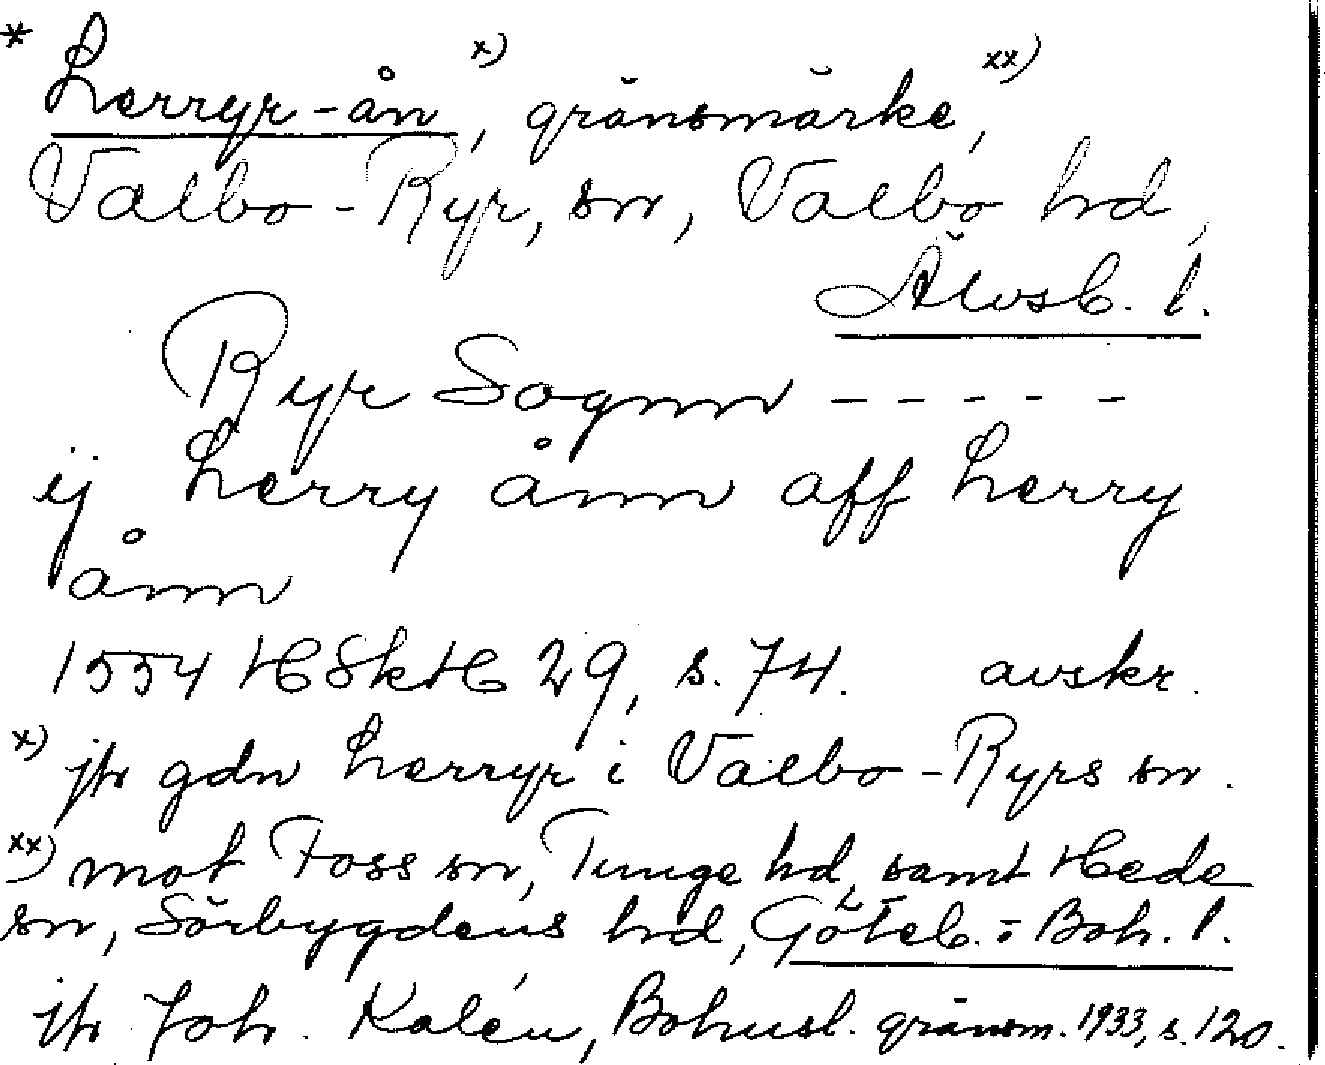 * Lerryr-ån x), gränsmärke, xx)
Valbo-Ryr, sn, Valbo hd,
Älvsb. l.
Ryr Sognn - - - - -
ij Lerry ånn aff Lerry
ånn
1554 HSkH 29, s. 74. avskr.
x) jfr gdn Lerryr i Valbo-Ryrs sn.
xx) mot Foss sn, Tunge hd, samt Hede
sn, Sörbygdens hd, Göteb. = Boh. l.
jfr Joh. Kalén, Bohusl. gränsm. 1933, s. 120.